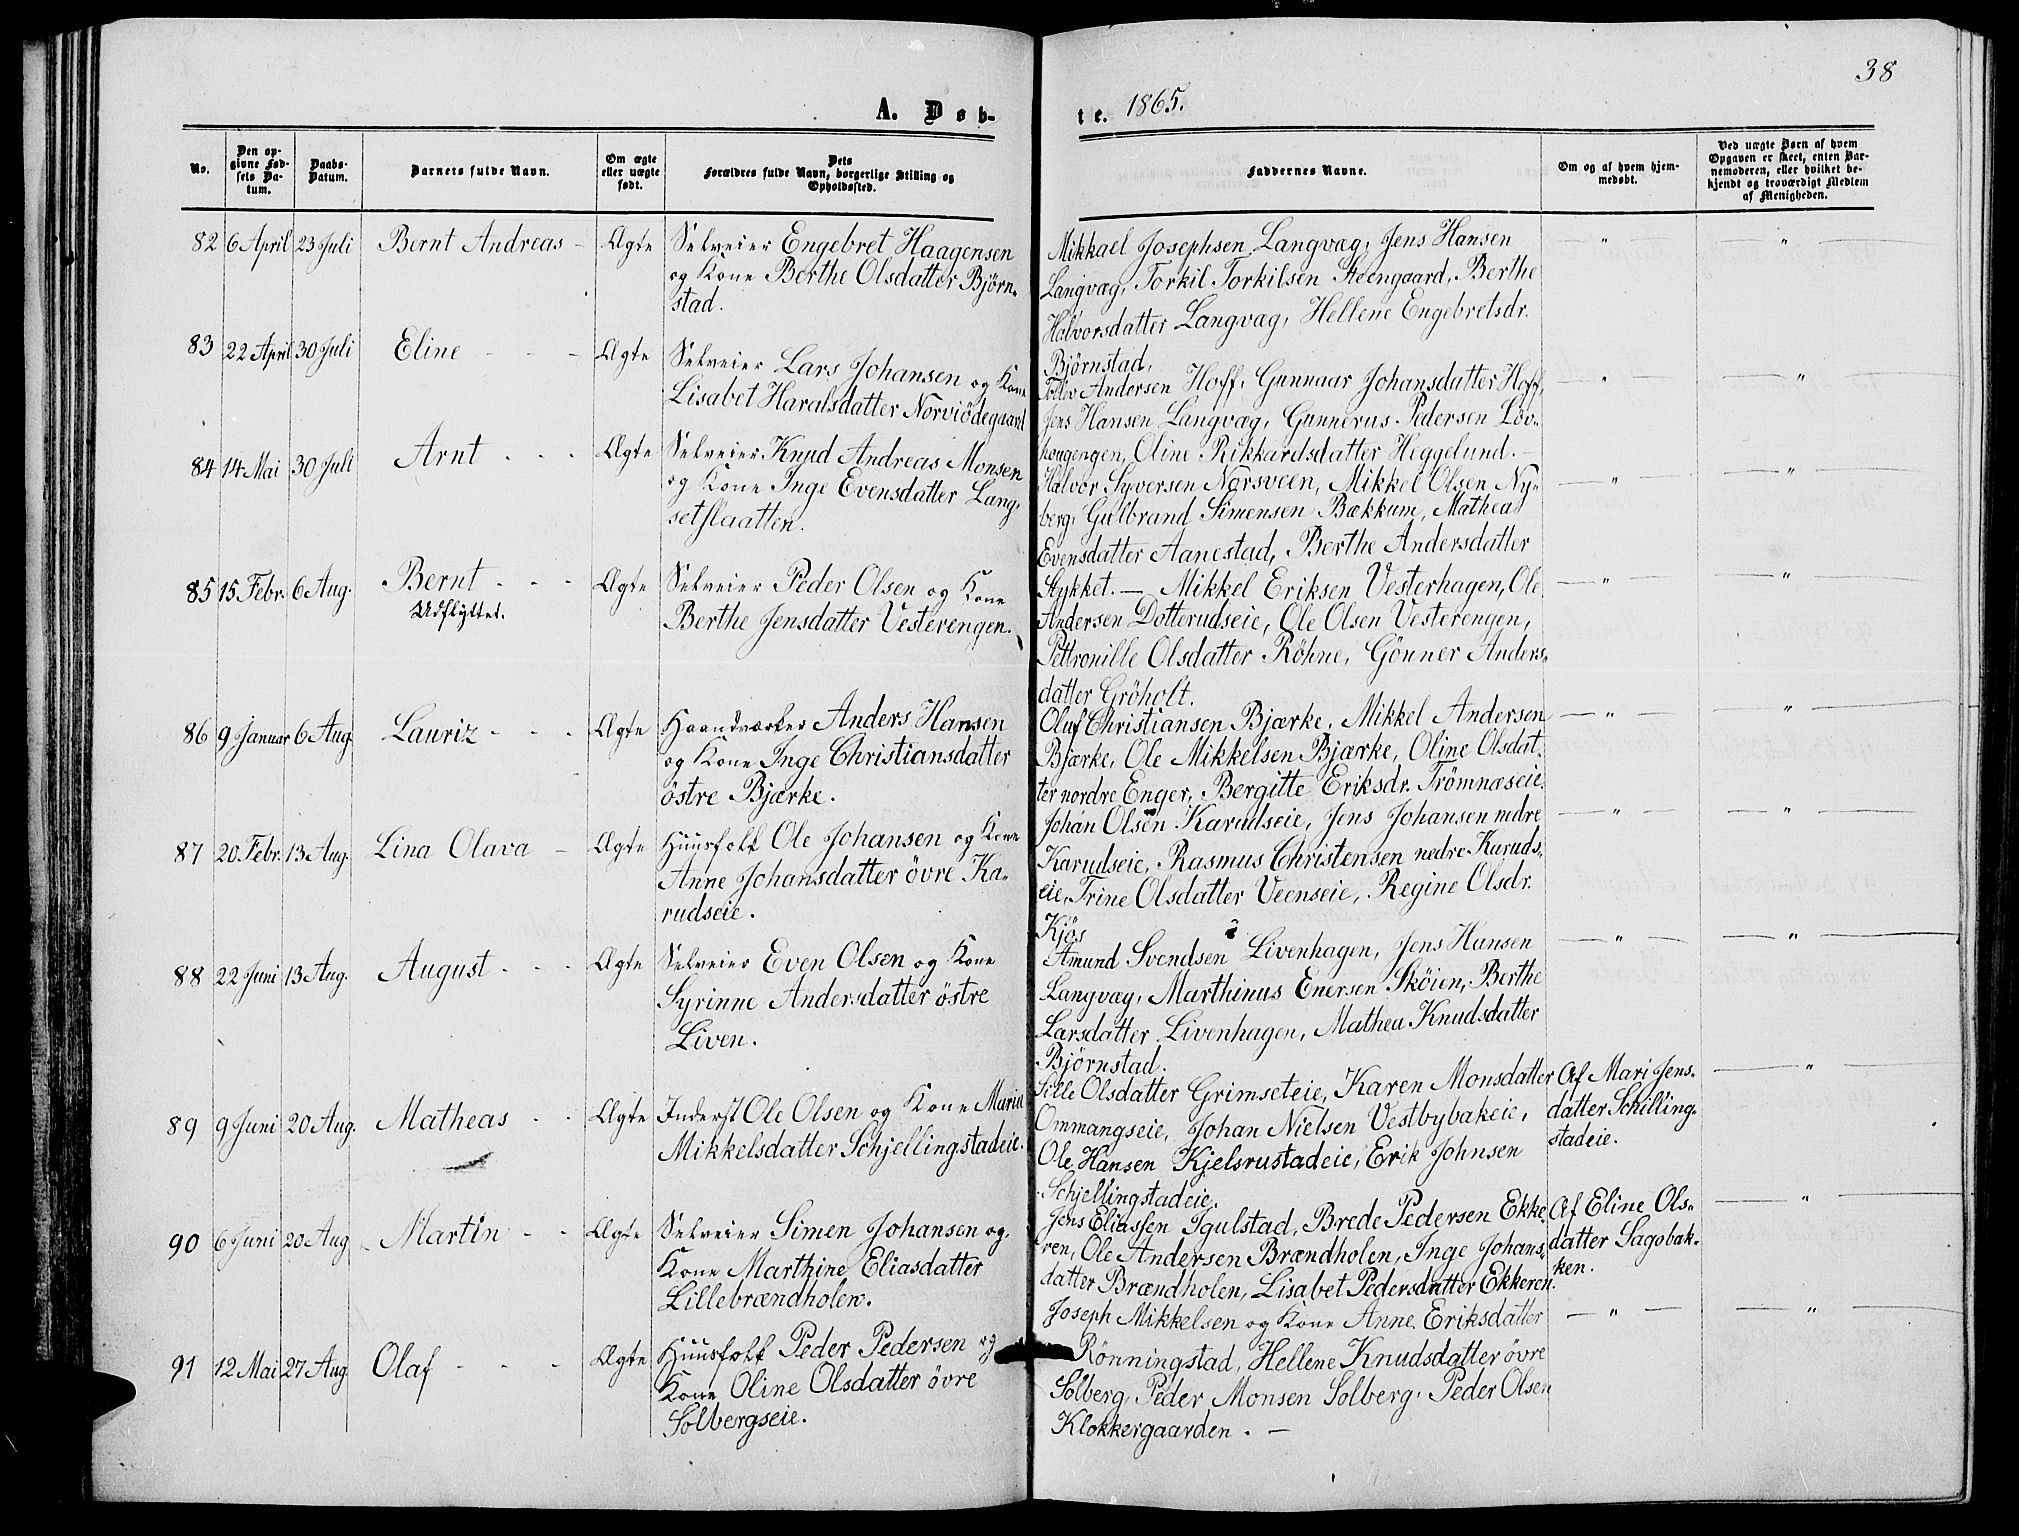 38
A. Døb-
te. 1865.
No.
Den op-
givne Fød-
sels Da-
tum.
Daabs-
Datum.
Barnets fulde Navn.
Om ægte
eller uægte
født.
Dets
Forældres fulde Navn, borgerlige Stilling og
Opholdssted.
Faddernes Navne.
Om og af hvem hjem-
medøbt.
Ved uægte Børn af hvem
Opgaven er skeet, enten Bar-
nemoderen, eller hvilket be-
kjendt og troværdigt Medlem
af Menigheden.
82 6 April 23 Juli Bernt Andreas - Ægte Selveier Engebret Haagensen
og Kone Berthe Olsdatter Björn-
stad.
Mikkael Josephsen Langvæg, Jens Hansen
Langvæg, Torkil Torkilsen Steengaard, Berthe
Halvorsdatter Langvæg, Hellene Engebretsdr.
Björnstad,
83 22 April 30 Juli Eline - - - Ægte Selveier Lars Johansen og Kone
Lisabet Haralsdatter Norviödegaard
Tollev Andersen Hoff, Gunnaar Johansdatter Hoff,
Jens Hansen Langvæg, Gunnerus Pedersen Löv-
hougengen, Oline Rikkardsdatter Heggelund. -
84 14 Mai 30 Juli Arnt - - - Ægte Selveier Knud Andreas Monsen
og Kone Inge Evensdatter Lang-
setslaatten.
Halvor Syversen Norsveen, Mikkel Olsen Ny-
berg, Gulbrand Simensen Bækkum, Mathea
Evensdatter Aanestad, Berthe Andersdatter
85 15 Febr. 6 Aug. Bernt - - - Ægte Selveier Peder Olsen og Kone
Udflyttet.
Berthe Jensdatter Vesterengen.
Stykket. - Mikkel Eriksen Vesterhagen, Ole
Andersen Dotterudseie, Ole Olsen Vesterengen,
Pettronille Olsdatter Röhne, Gönner Anders-
datter Gröholt.
86 9 Januar 6 Aug. Lauriz - - - Ægte Haandværker Anders Hansen
og Kone Inge Christiansdatter
östre Bjærke.
Oluf Christiansen Bjærke, Mikkel Andersen
Bjærke, Ole Mikkelsen Bjærke, Oline Olsdat-
ter nordre Enger, Bergitte Eriksdr. Trömnæseie.
87 20 Febr. 13 Aug. Lina Olava - Ægte Huusfolk Ole Johansen og Kone
Anne Johansdatter övre Ka-
rudseie.
Johan Olsen Karudseie, Jens Johansen nedre
Karudseie, Rasmus Christensen nedre Karuds-
eie, Trine Olsdatter Veenseie, Regine Olsdr.
Kjös
88 22 Juni 13 Aug. August - - - Ægte Selveier Even Olsen og Kone
Syrinne Andersdatter östre
Liven.
Amund Svendsen Livenhagen, Jens Hansen
Langvæg, Marthinus Enersen Sköien, Berthe
Larsdatter Livenhagen, Mathea Knudsdatter
Björnstad.
89 9 Juni 20 Aug. Matheas - - Ægte Inderst Ole Olsen og Kone Maria
Mikkelsdatter Schjellingstadeie.
Sille Olsdatter Grimseteie, Karen Monsdatter
Ommangseie, Johan Nielsen Vestbybakeie,
Ole Hansen Kjelsrustadeie, Erik Johnsen
Schjellingstadeie.
Af Mari Jens-
datter Schilling-
stadeie.
90 6 Juni 20 Aug. Martin - - Ægte Selveier Simen Johansen og
Kone Marthine Eliasdatter
Lillebrændholen.
Jens Eliassen Igulstad, Brede Pedersen Ekke-
ren, Ole Andersen Brændholen, Inge Johans-
datter Brændholen, Lisabet Pedersdatter Ekkeren.
Af Eline Ols-
datter Sagobak-
ken.
91 12 Mai 27 Aug. Olaf - - - Ægte Huusfolk Peder Pedersen og
Kone Oline Olsdatter övre
Solbergseie.
Joseph Mikkelsen og Kone Anne Eriksdatter
Rönningstad, Hellene Knudsdatter övre
Solberg, Peder Monsen Solberg, Peder Olsen
Klokkergaarden. -